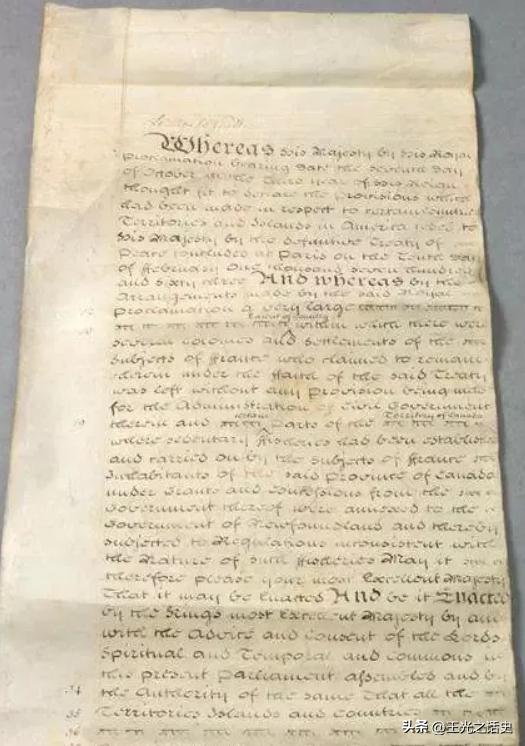 Whereas his Majesty by his Royal
Proclamation bearing Date the seventh Day
of October in the third year of his Reign
thought fit to declare the Provisions which
had been made in respect to certain Countries
Territories and Islands in America ceded to
his Majesty by the definitive Treaty of
Peace concluded at Paris on the Tenth Day
of ffebruary One thousand seven hundred
and sixty three And whereas by the
Arrangements made by the said Royal
Proclamation a very large
Extent of Country
within which there were
several Colonies and Settlements of the
Subjects of ffrance who claimed to remain
therein under the ffaith of the said Treaty
was left without any Provision being made
for the Administration of Civil Government
certain Territory of Canada
therein and Parts of the
where sedentary ffisheries had been established
and carried on by the Subjects of ffrance
Inhabitants of the said Province of Canada
under Grants and Concessions from the
Government thereof were annexed to the
Government of Newfoundland and thereby
subjected to Regulations inconsistent with
the Nature of such ffisheries May it
therefore please your most Excellent Majesty
That it may be Enacted And be it Enacted
by the Kings most Excellent Majesty by and
with the Advice and Consent of the Lords
Spiritual and Temporal and Commons in
this present Parliament assembled and by
34 the Authority of the same That all the
35 Territories Islands and Countries
36
头条 @王光之话史